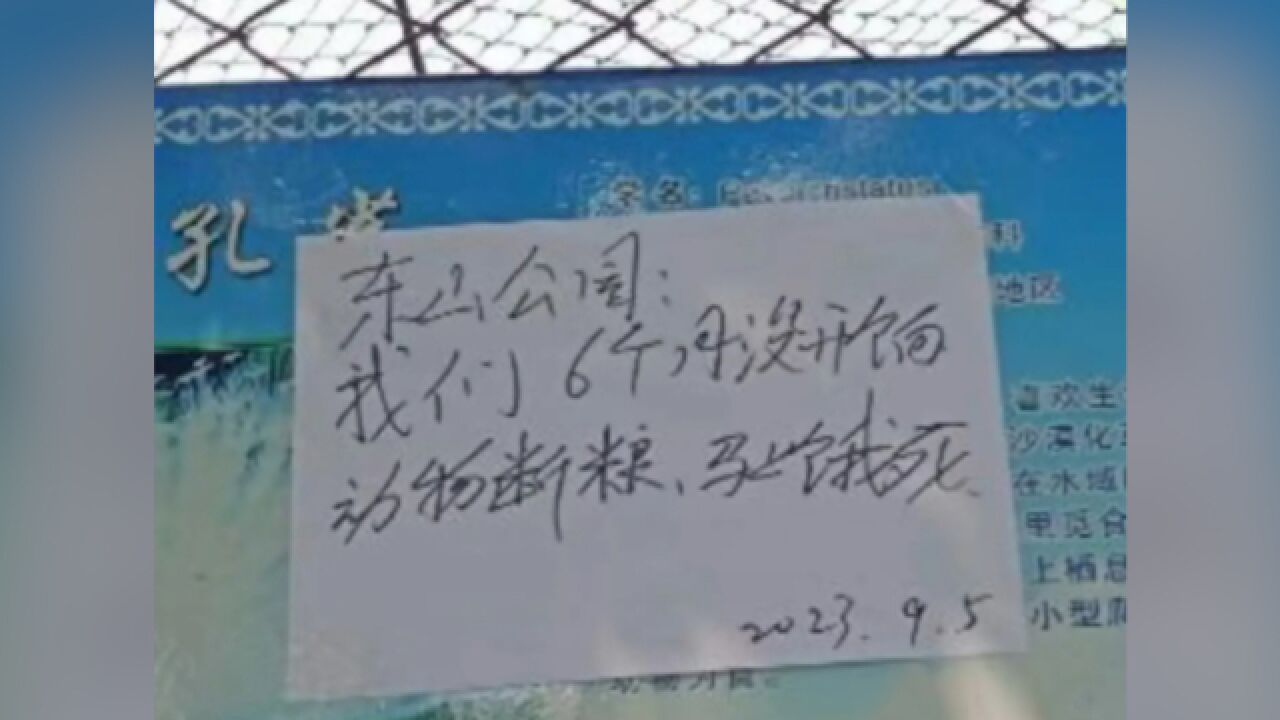 孔雀
学名:
科
地区
东山公园:
我们6个月没开饷
动物断粮、马上饿死.
2023.9.5
喜欢生
沙漠化
在水域
里觅食
上栖息
小型爬